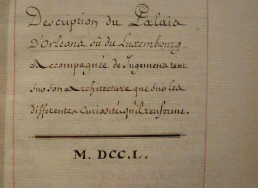 Description du Palais
D'Orleans où du Luxembourg
Accompagnée de Jugemens tant
sur son Architecture que sur les
differentes curiosités qu'il renferme.
M. DCC. L.